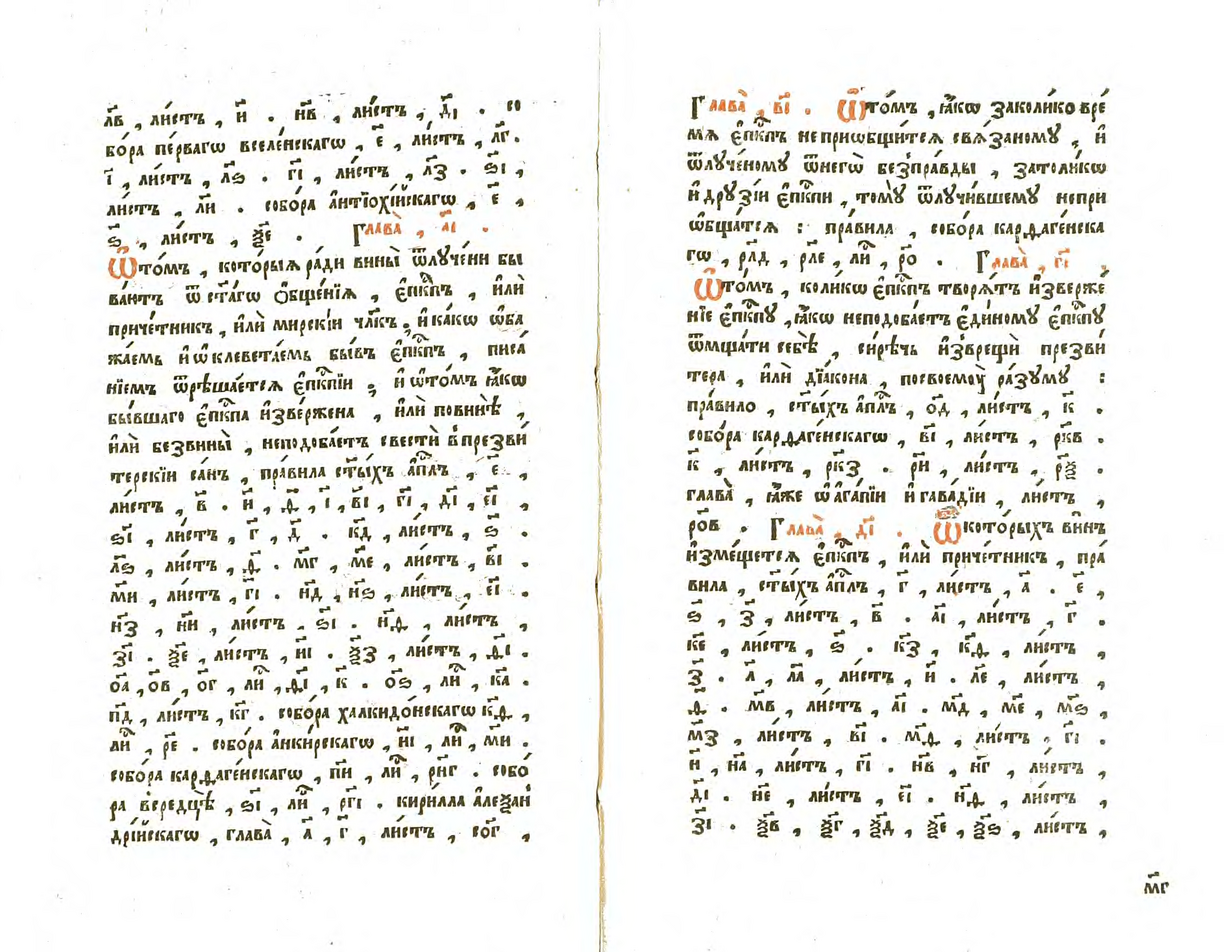 л҃в , ли́стъ , и҃ . н҃в , ли́стъ , д҃і . со
бо́ра пе́рвагѡ вселе́нскагѡ , є҃ , ли́стъ , л҃г .
і҃ , ли́стъ , л҃ѕ . г҃і , ли́стъ , л҃з . ѕ҃і ,
ли́стъ , л҃и . собо́ра а҆нтїѡхі́йскагѡ , є҃ ,
ѕ҃ , ли́стъ , ѯ҃є . Глава̀ , а҃і .
Ѡ҆то́мъ , кото́рыѧ ради вины̀ ѿлуче́ни бы
ва́ютъ ѿ ст҃а́гѡ ѻ҆бще́нїѧ , є҆пкⷭ҇пъ , и҆лѝ
приче́тникъ , и҆лѝ мирскі́и чл҃къ , и҆ ка́кѡ ѡ҆ба
жа́емь и҆ ѡ҆клевета́емь бы́въ є҆пкⷭ҇пъ , писа́
нїемъ ѿрѣша́етсѧ є҆пкⷭ҇пїи , и҆ ѡ҆то́мъ ꙗ҆́кѡ
бы́вшаго є҆пкⷭ҇па и҆зве́ржена , и҆лѝ пови́ннѣ ,
и҆лѝ безвины̀ , неподоба́етъ свестѝ в̾презви́
терскїи са́нъ , пра́вила ст҃ы́хъ а҆пⷭ҇лъ , є҃ ,
ли́стъ , в҃ . и҃ , ѳ҃ , і҃ , в҃і , г҃і , д҃і , є҃і ,
ѕ҃і , ли́стъ , г҃ , д҃ . к҃д , ли́стъ , ѕ҃ .
л҃ѕ , ли́стъ , ѳ҃ . м҃г , м҃є , ли́стъ , в҃і .
м҃и , ли́стъ , г҃і . н҃д , н҃ѕ , ли́стъ , є҃і .
н҃з , н҃и , ли́стъ . ѕ҃і . н҃ѳ , ли́стъ ,
з҃і . ѯ҃є , ли́стъ , и҃і . ѯ҃з , ли́стъ , ѳ҃і .
о҃а , о҃в , о҃г , лиⷭ҇ , ѳ҃і , к҃ . о҃ѕ , лиⷭ҇ , к҃а .
п҃д , ли́стъ , к҃г . собо́ра халкидо́нскагѡ к҃ѳ ,
лиⷭ҇ , р҃є . собо́ра а҆нки́рскагѡ , и҃і , лиⷭ҇ , м҃и .
собо́ра карѳаге́нскагѡ , п҃и , лиⷭ҇ , р҃нг . собо́
ра вередцѣ̀ , ѕ҃і , лиⷭ҇ , р҃гі . кири́лла а҆леѯан
дрі́йскагѡ , глава̀ , а҃ , г҃ , ли́стъ , со҃г ,
Глава̀ , в҃і . Ѡ҆то́мъ , ꙗ҆́кѡ заколи́ко вре́
мѧ є҆пкⷭ҇пъ неприѡбщи́тсѧ свѧ́заному , и҆
ѿлуче́ному ѿнегѡ̀ без̾пра́вды , затоли́кѡ
и҆ дру́зїи є҆пкⷭ҇пи , томꙋ̀ ѿлучи́вшему непри
ѡбща́тсѧ : пра́вила , собо́ра карѳаге́нска
гѡ , р҃лд , р҃лє , лиⷭ҇ , р҃о . Глава̀ , г҃і .
Ѡ҆то́мъ , коли́кѡ є҆пкⷭ҇пъ творѧ́тъ и҆зверже́
нїе є҆пкⷭ҇пу , ꙗ҆́кѡ неподоба́етъ є҆ди́ному є҆пкⷭ҇пу
ѿмща́ти себѣ̀ , си́рѣчь и҆зврещѝ презви́
тера , и҆лѝ дїа́кона , посвоемоу̀ ра́зуму :
пра́вило , ст҃ы́хъ а҆пⷭ҇лъ , о҃д , ли́стъ , к҃ .
собо́ра карѳаге́нскагѡ , в҃і , ли́стъ , р҃кв .
к҃ , ли́стъ , р҃кз . р҃и , ли́стъ , р҃ѯ .
глава̀ , ꙗ҆́же ѡ҆ а҆га́пїи и҆ гава́дїи , ли́стъ ,
р҃ов . Глава̀ , д҃і . Ѡ҆кото́рыхъ ви́нъ
и҆зме́щетсѧ є҆пкⷭ҇пъ , и҆лѝ приче́тникъ , пра́
вила , ст҃ы́хъ а҆пⷭ҇лъ , г҃ , ли́стъ , а҃ . є҃ ,
ѕ҃ , з҃ , ли́стъ , в҃ . а҃і , ли́стъ , г҃ .
к҃є , ли́стъ , ѕ҃ . к҃з , к҃ѳ , ли́стъ ,
з҃ . л҃ , л҃а , ли́стъ , и҃ . л҃є , ли́стъ ,
ѳ҃ . м҃в , ли́стъ , а҃і . м҃д , м҃є , м҃ѕ ,
м҃з , ли́стъ , в҃і . м҃ѳ , ли́стъ , г҃і .
н҃ , н҃а , ли́стъ , г҃і . н҃в , н҃г , ли́стъ ,
д҃і . н҃є , ли́стъ , є҃і . н҃ѳ , ли́стъ ,
з҃і . ѯ҃в , ѯ҃г , ѯ҃д , ѯ҃є , ѯ҃ѕ , ли́стъ ,
м҃г